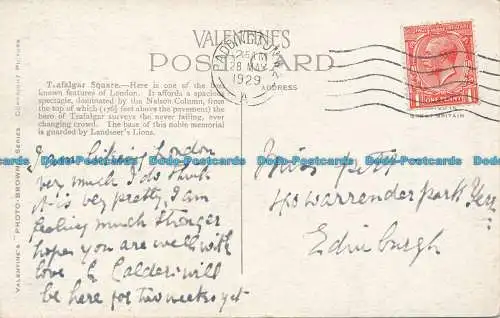 VALENTINES
POSTCARD
ADDRESS
PADDINGTON
AM
28 MAY
1929
A
ONE PENNY
GREAT BRITAIN
Trafalgar Square.—Here is one of the best
known features of London. It affords a spacious
spectacle, dominated by the Nelson Column, from
the top of which (176½ feet above the pavement) the
hero of Trafalgar surveys the never failing, ever
changing crowd. The base of this noble memorial
is guarded by Landseer's Lions.
VALENTINE'S "PHOTO-BROWN" SERIES COPYRIGHT PICTURE
I am liking London
very much I do think
it is very pretty, I am
feeling much stronger
hope you are well with
love
will
be here for two weeks yet
Miss
Warrender Park Terr
Edinburgh
Postcards-Books Postcards-Books Postcards-Books Postcards-Books Postcards-Books